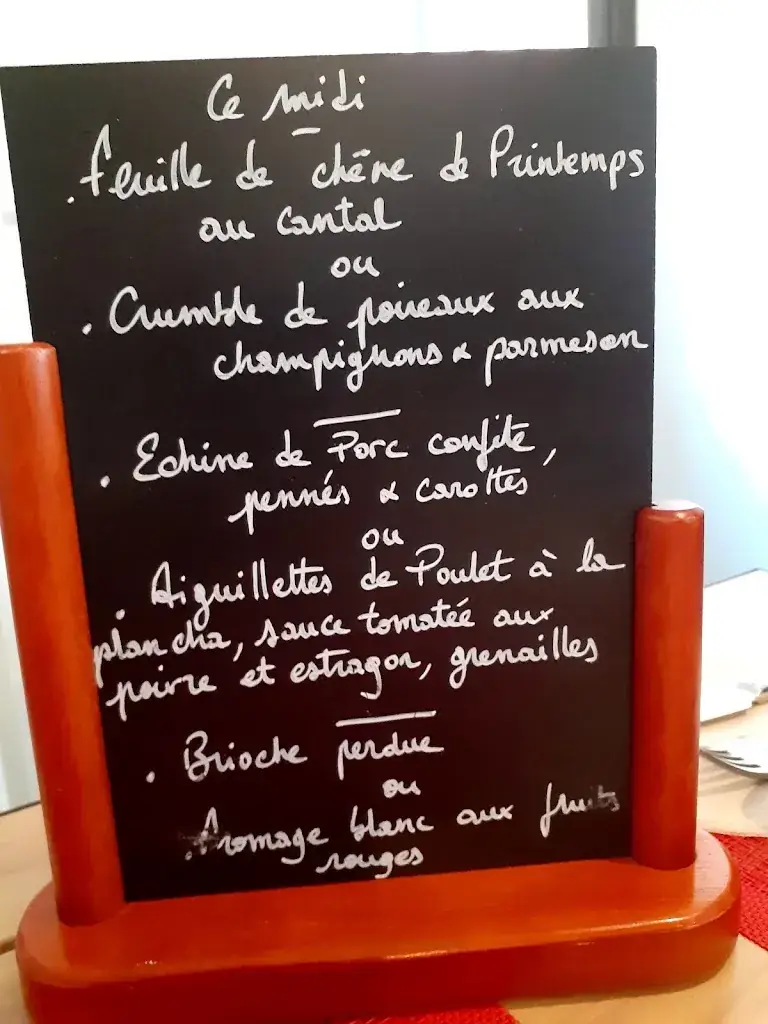 Ce midi
. Feuille de chêne de Printemps
au Cantal
ou
. Crumble de poireaux aux
champignons & parmesan
. Echine de Porc confite,
pennés & carottes
ou
. Aiguillettes de Poulet à la
plancha, sauce tomatée aux
poivre et estragon, grenailles
. Brioche perdue
ou
. Fromage blanc aux fruits
rouges